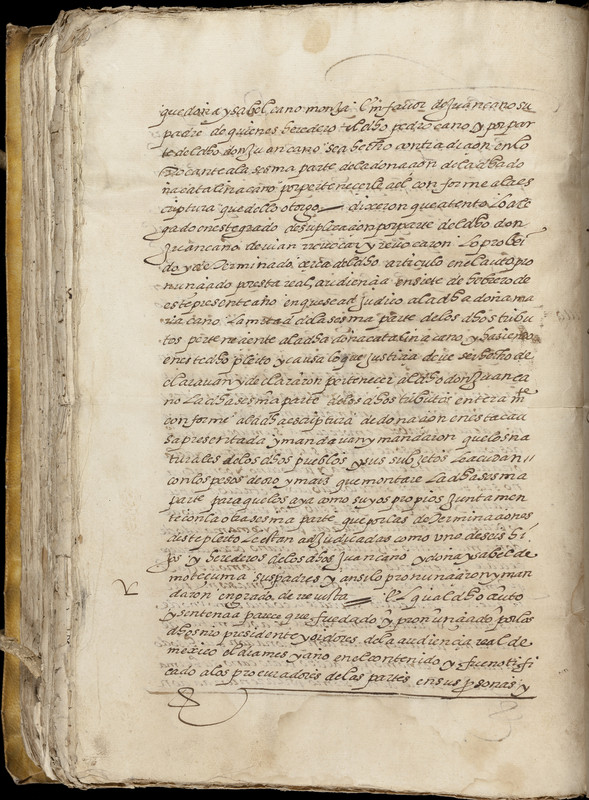 que doña ysabel cano monja en favor de juan cano su
padre de quien es heredero el dho pedro cano y por par
te del dho don juan cano sea hecho contradicion en lo
tocante a la sesma parte de la donacion de la dha do
ña catalina cano por pertenecerle a el conforme a la es
criptura que dello otorgo dixeron que atento lo ale
gado en este grado de suplicacion por parte del dho don
Juan cano devian rrevocar y revocaron lo probei
do y determinado cerca del dho articulo en el auto pro
nunciado por esta real audiencia en siete de hebrero de
este presente año en que se adjudico a la dha doña ma
ria cano la mitad de la sesma parte de los dhos tribu
tos perteneciente a la dha doña catalina cano y haziendo
en este dho pleito y causa lo que justicia deve ser hecho de
claravan y declararon pertenecer al dho don Juan ca
no la dha sesma parte de los dhos tributos entera mte
conforme a la dha escriptura de donacion en esta cau
sa presentada y mandavan y mandaron que los na
turales de los dhos pueblos y sus subjetos le acudan
con los pesos de oro y maiz que montare la dha sesma
parte para que los aya como suyos propios juntamen
te con la otra sesma parte que por las determinaciones
deste pleito le estan adjudicadas como uno de seis hi
jos y herederos de los dhos juan cano y doña ysabel de
motecuma sus padres y ansi lo pronunciaron y man
daron en grado de revista El qual dho auto
y sentencia parece que fue dado y pronunciado por los
dhos mio presidente y oidores de la audiencia real de
mexico el dia mes y año en el contenido y fue notifi
cado a los procuradores de las partes en sus personas y